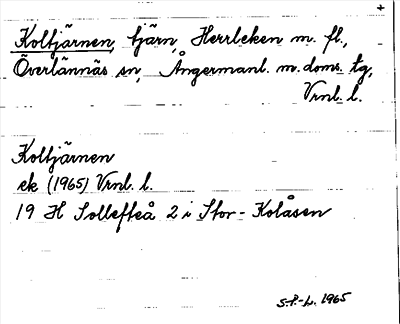 +
Koltjärnen, tjärn, Herrleken m. fl.,
Överlännäs sn, Ångermanl. m. doms. tg,
Vrnl. l.
Koltjärnen
ek (1965) Vrnl. l.
19 H Sollefteå 2 i Stor-Kolåsen
S.P.-L. 1965